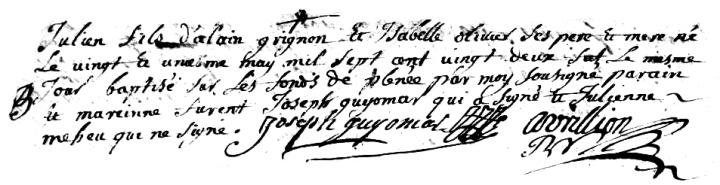 Julien fils d'alain grignon et Isabelle olivier ses pere et mere né
Le vingt et unieme may mil sept cent vingt deux fut le mesme
B Jour baptisé sur les fonds de plenée par moy sousigné parain
et mareinne furent Joseph guyomar qui a signé et Julienne
meheu qui ne signe. Joseph guyomar